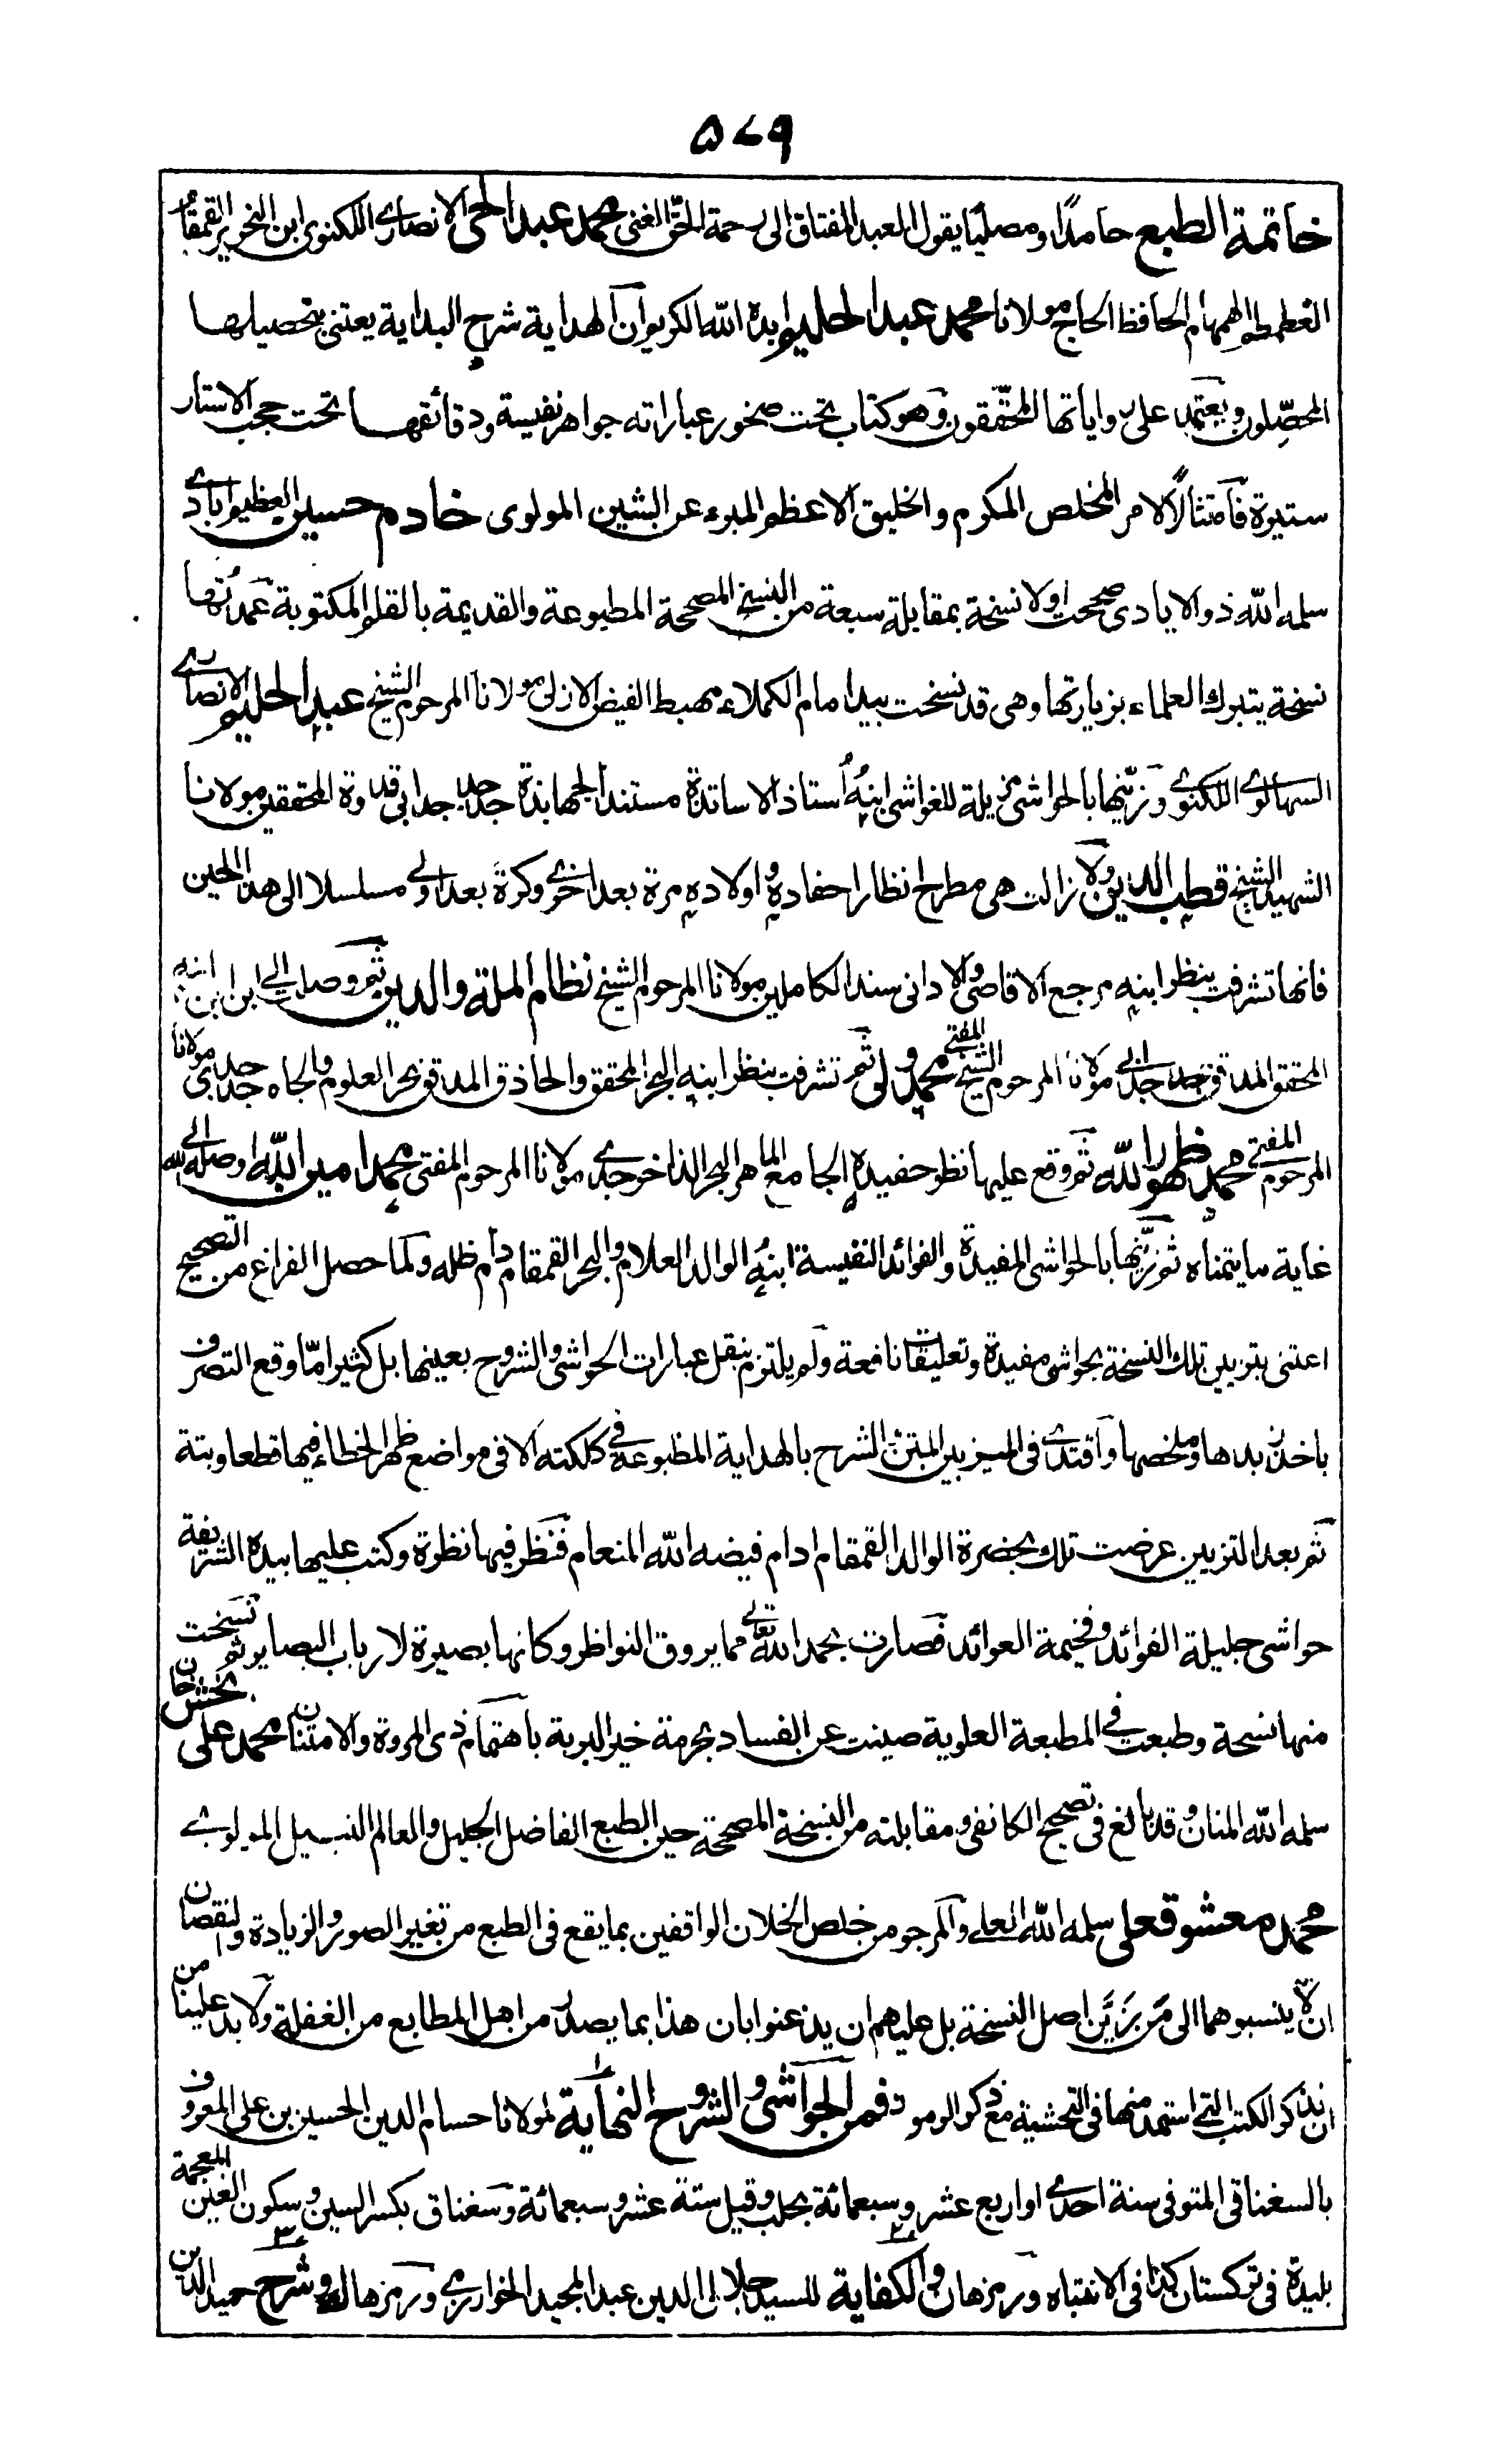 ٥٧٩
خاتمة الطبع حامدًا ومصليًا يقول العبد المفتاق الى رحمة الحق الغنى محمد عبد الحى الانصارى اللكنوى ابن النحرير القمقام
الغطمطم الهمهام الحافظ الحاج مولانا محمد عبد الحليم ابده الله الكريم ان الهداية شرح البداية يعتنى بتحصيلها
المحصّلون ويعتمد على رواياتها المحقّقون وهو كتاب تحت صخور عباراته جواهر نفيسة ودقائقها تحت حجب الاستار
ستيرة فامتثالًا لامر المخلص المكرم والخليق الاعظم المبرء عن الشين المولوى خادم حسين العظيم ابادى
سلمه الله ذو الايادى صححت اولا نسخة بمقابلة سبعة من النسخ المصححة المطبوعة والقديمة بالقلم المكتوبة عمدتها
نسخة يتبرك العلماء بزيارتها وهى قد نسخت بيد امام الكملاء مهبط الفيض الازلى مولانا المرحوم الشيخ عبد الحليم الانصارى
السهالوى اللكنوى وزيّنها بالحواشى مزيلة للغواشى ابنه استاذ الاساتذة مستند الجهابذة جد جد جد ابى قدوة المحققين مولانا
الشهيد الشيخ قطب الدين ولا زالت هى مطرح انظار احفاده واولاده مرة بعد اخرى وكرة بعد اولى مسلسلا الى هذا الحين
فانها تشرفت بنظر ابنه مرجع الاقاصى والادانى سند الكاملين مولانا المرحوم الشيخ نظام الملة والدين ثم وصل الى ابن ابن ابنه
المحقق المدقق جد جد ابى مولانا المرحوم الشيخ المفتى محمد ولى ثم تشرفت بنظر ابنه البحر المحقق والحاذق المدقق بحر العلوم والجاه جد جدى مولانا
المرحوم المفتى محمد ظهور الله ثم وقع عليها نظر حفيده الجامع الماهر البحر الذاخر جدى مولانا المرحوم المفتى محمد امين الله اوصله الله الى
غاية ما يتمناه ثم زيّنها بالحواشى المفيدة والفوائد النفيسة ابنه الوالد العلام والبحر القمقام دام ظله ولما حصل الفراغ من التصحيح
اعتنى بتزيين تلك النسخة بحواشى مفيدة وتعليقات نافعة ولم يلتزم بنقل عبارات الحواشى والشروح بعينها بل كثيرا مّا وقع التصرف
باخذ زبدها وملخصها واقتدى فى الميز بين المتن والشرح بالهداية المطبوعة فى كلكته الا فى مواضع ظهر الخطاء فيها قطعا وبتة
ثم بعد التزيين عرضت تلك بحضرة الوالد القمقام ادام فيضه الله المنعام فنظر فيها نظرة وكتب عليها بيده الشريفة
حواشى جليلة الفوائد وفخيمة العوائد فصارت بحمد الله تعالى مما يروق النواظر وكانها بصيرة لارباب البصاير ثم نسخت
منها نسخة وطبعت فى المطبعة العلوية صينت عن الفساد بحرمة خير البرية باهتمام ذى المروة والامتنان محمد على بخش خان
سلمه الله المنان وقد بالغ فى تصحيح الكانفى ومقابلته من النسخة المصححة حين الطبع الفاضل الجليل والعالم النبيل المولوى
محمد معشوقعلى سلمه الله العلى والمرجو من خلص الخلان الواقفين بما يقع فى الطبع من تغير الصور والزيادة والنقصان
ان لا ينسبوهما الى من زيّن اصل النسخة بل عليهم ان يذعنوا بان هذا بما يصدر من اهل المطابع من الغفلة ولا بد علينا من
ان نذكر الكتب التى استمد منها فى التحشية مع ذكر الرموز فمن الحواشى والشروح النهاية لمولانا حسام الدين الحسين بن على المعروف
بالسغناقى المتوفى سنة احدى او اربع عشر وسبعمائة بحلب وقيل ستة عشر وسبعمائة وسغناق بكسر السين وسكون الغين المعجمة
بليدة فى تركستان كذا فى الانتباه ورمزها ن والكفاية للسيد جلال الدين عبد المجيد الخوارزمى ورمزها ك وشرح حميد الدين